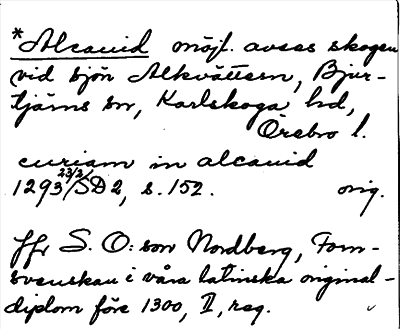 *Alcauid möjl. avses skogen
vid sjön Alkvättern, Bjur-
tjärns sn, Karlskoga hd,
Örebro l.
curiam in alcauid
1293 23/2/SD 2, s. 152. orig.
ffr S. O:son Nordberg, Forn-
svenskan i våra latinska original-
diplom före 1300, II, reg.